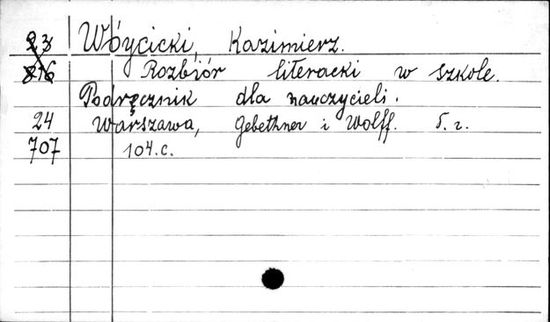 23 Wóycicki, Kazimierz.
816 Rozbiór literacki w szkole.
Podręcznik dla nauczycieli.
24 Warszawa, Gebethner i Wolff. б. г.
707 104 с.